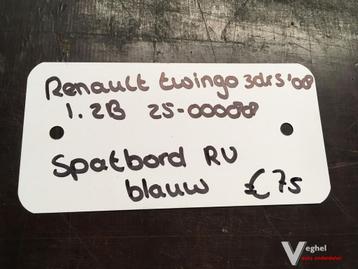 Renault twingo 3drs '08
1.2B 25-000088
Spatbord RV
blauw €75
Veghel